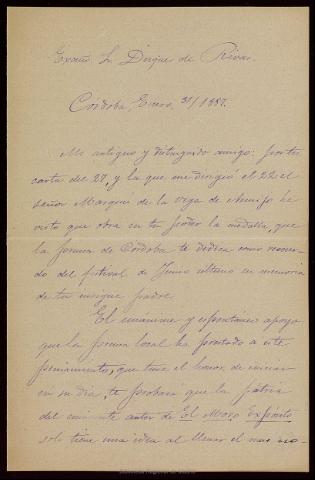 Excmo Sr Duque de Rivas.
Córdoba, Enero, 31/1887.
Mi antiguo y distinguido amigo: por tu
carta del 27, y la que me dirigió el 22 el
señor Marques de la Vega de Armijo he
visto que obra en tu poder la medalla, que
la prensa de Córdoba te dedica como recuer-
do del festival de Junio ultimo en memoria
de tu insigne padre.
El unanime y espontáneo apoyo
que la prensa local ha prestado a este
pensamiento, que tuve el honor de iniciar
en su dia, te probará que la pátria
del eminente autor de El Moro Expósito
solo tiene una idea al llenar el mas no-